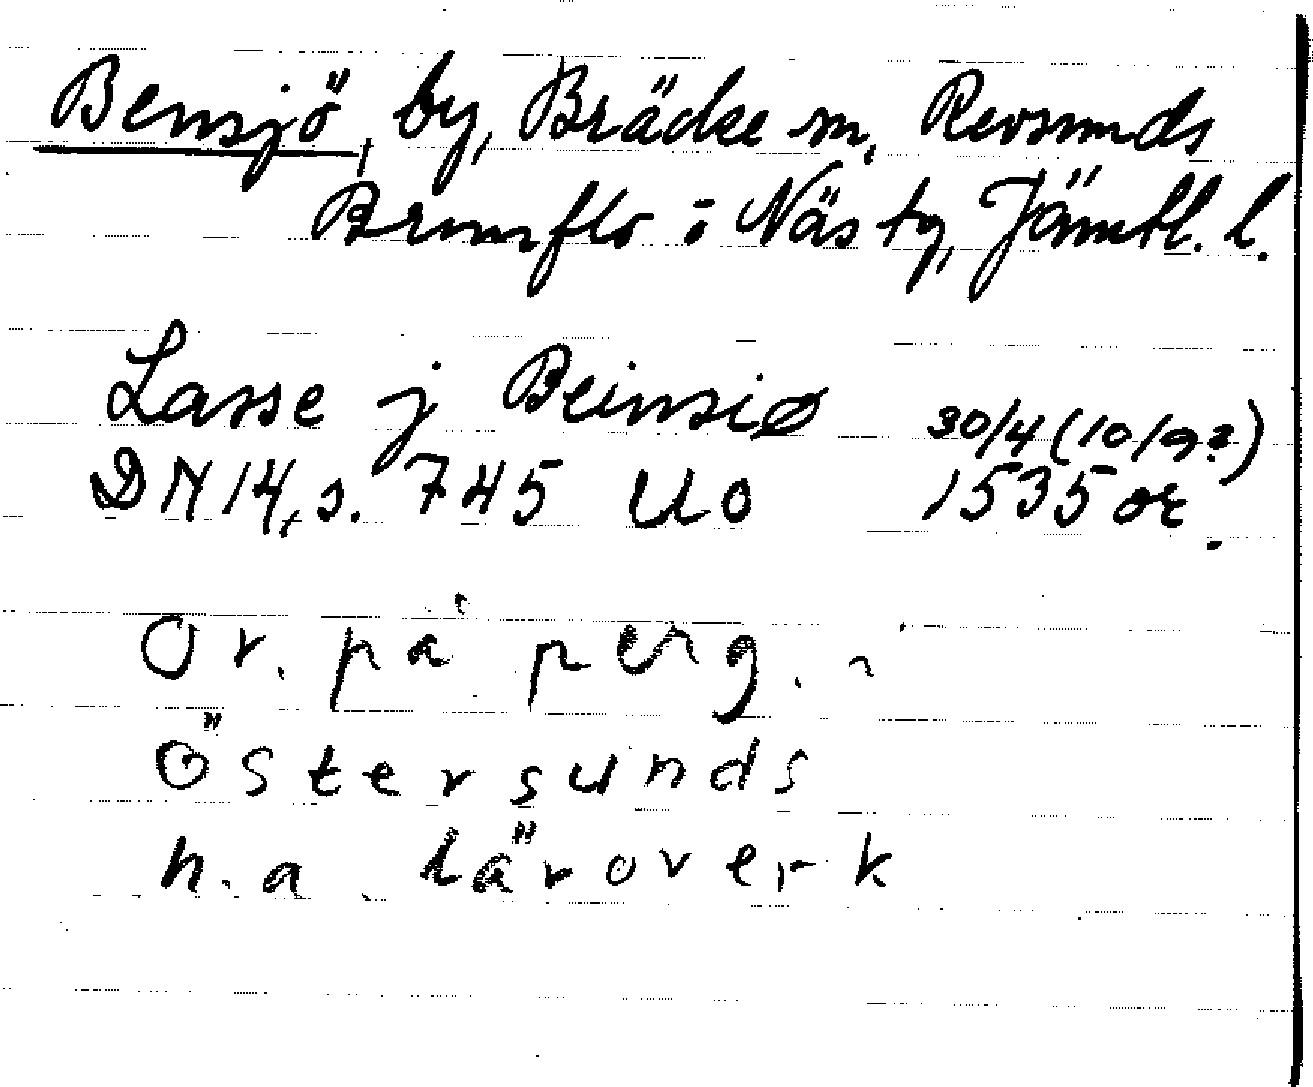 Bensjö, by, Bräcke sn, Revsunds
Brunflo o Näs tg, Jämtl. l.
Lasse j Beinsiø 30/4 (10/9?)
DN 14, s. 745 Uo 1535 or.
Or. på perg. i
Östersunds
h. a. läroverk